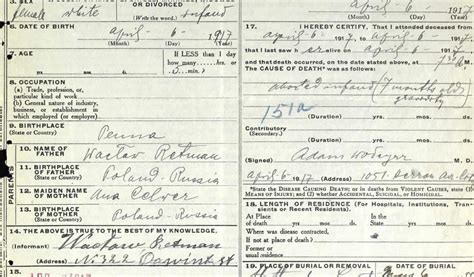 OR DIVORCED
female white (Write the word.) infant
6. DATE OF BIRTH
april - 6 - 1917
(Month) (Day) (Year)
7. AGE
If LESS than 1 day
how many.........hrs.
or 5 min.?
8. OCCUPATION
(a) Trade, profession, or
particular kind of work
(b) General nature of industry,
business, or establishment in
which employed (or employer)
9. BIRTHPLACE
(State or Country)
Penna
PARENTS
10. NAME OF
FATHER
Waclav Retman
11. BIRTHPLACE
OF FATHER
(State or Country)
Poland Russia
12. MAIDEN NAME
OF MOTHER
Ana
13. BIRTHPLACE
OF MOTHER
(State or Country)
Poland-Russia
14. THE ABOVE IS TRUE TO THE BEST OF MY KNOWLEDGE
Waclaw Retman
No 322 st
15.
april 6 1917
(Month) (Day) (Year)
17. I HEREBY CERTIFY, That I attended deceased from
april 6 - 1917, to april - 6 - 1917
that I last saw her alive on April - 6 - 1917
and that death occurred, on the date stated above, at M.
The CAUSE OF DEATH* was as follows:
aborted infant (7 months old
151a
yrs. mos. ds.
Contributory
(Secondary)
(Duration) yrs. mos. ds.
(Signed) Adam
april 6 - 1917 (Address) 1051
*State the DISEASE CAUSING DEATH; or in deaths from VIOLENT CAUSES, state
(1) MEANS OF INJURY; and (2) whether ACCIDENTAL, SUICIDAL, or HOMICIDAL.
18. LENGTH OF RESIDENCE (For Hospitals, Institutions, Transients or Recent Residents).
At Place In the
of death yrs. mos. ds. State yrs. mos. ds.
Where was disease contracted,
if not at place of death?
Former or
usual residence
19. PLACE OF BURIAL OR REMOVAL